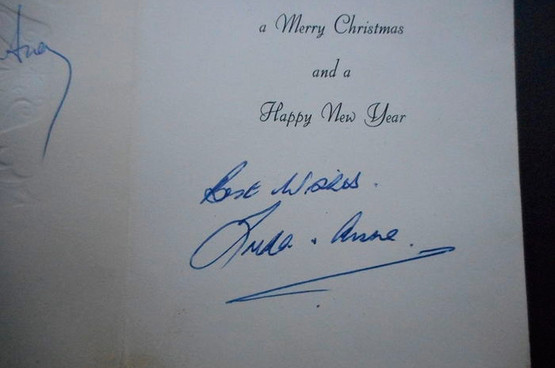 a Merry Christmas
and a
Happy New Year
Best Wishes.
& Anne.